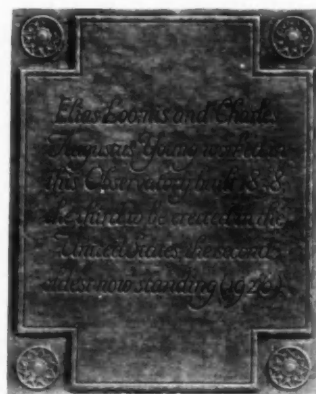 Elias Loomis and Charles
Augustus Young worked in
this Observatory built 1838,
the third to be erected in the
United States the second
oldest now standing (1926).